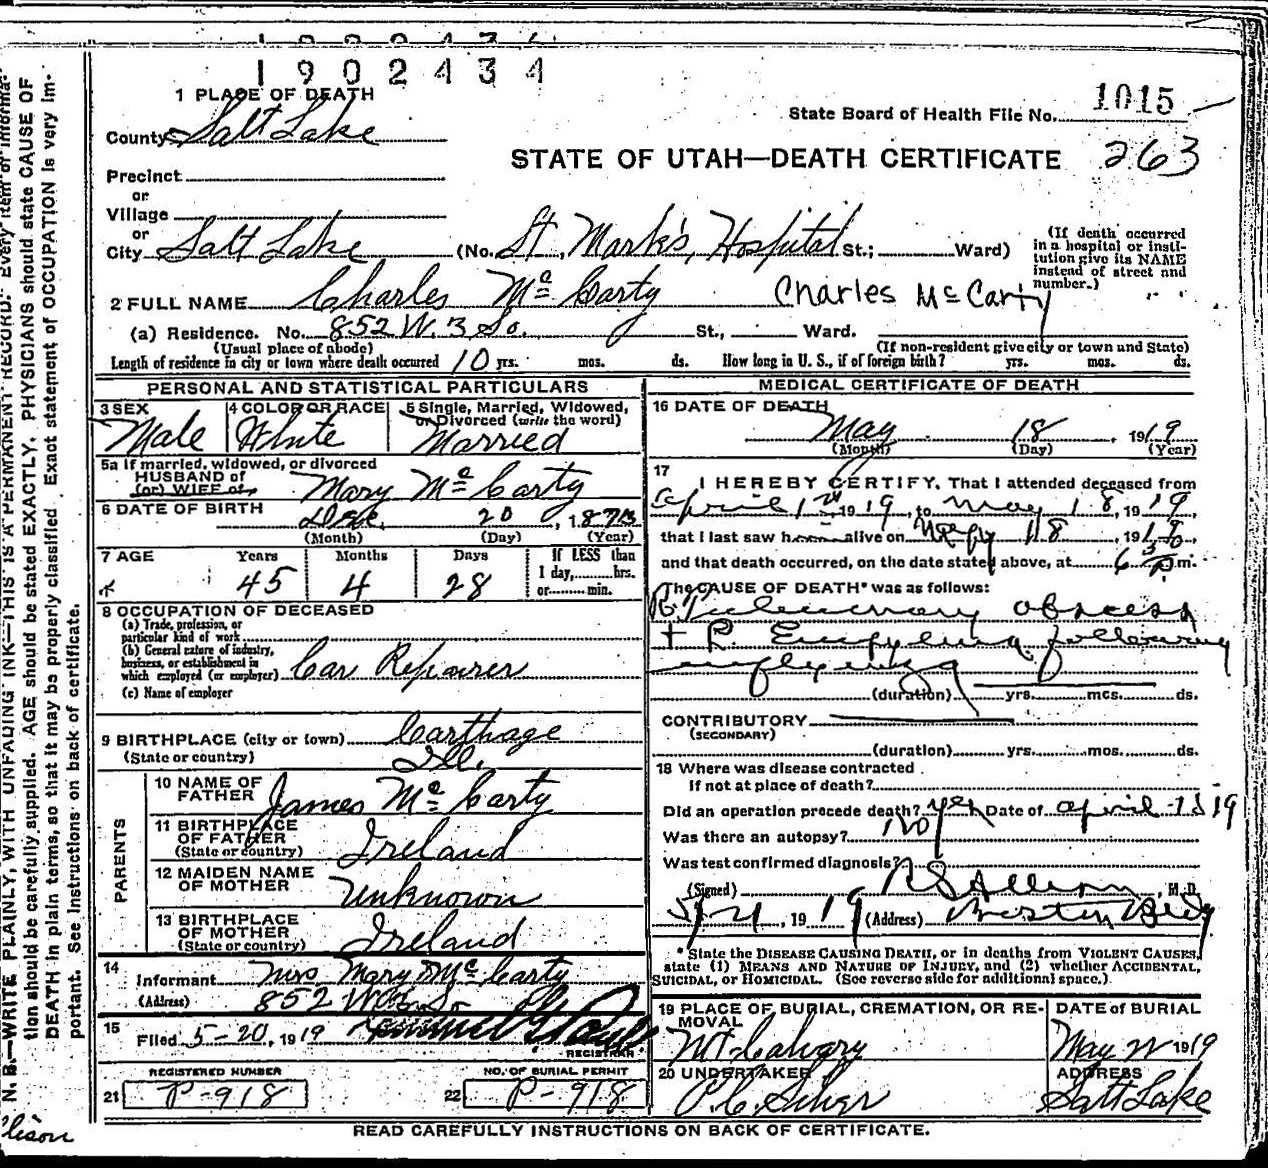 1902434
1 PLACE OF DEATH
State Board of Health File No. 1015
County Salt Lake
STATE OF UTAH—DEATH CERTIFICATE 263
Precinct
or
Village
or
City Salt Lake (No. St. Mark's, Hospital St.; Ward)
(If death occurred in a hospital or institution give its NAME instead of street and number.)
2 FULL NAME Charles Mc Carty Charles McCarty
(a) Residence. No. 852 W. 3 So. St., Ward.
(Usual place of abode) (If non-resident give city or town and State)
Length of residence in city or town where death occurred 10 yrs. mos. ds. How long in U. S., if of foreign birth? yrs. mos. ds.
PERSONAL AND STATISTICAL PARTICULARS
3 SEX Male
4 COLOR OR RACE White
5 Single, Married, Widowed, or Divorced (write the word) Married
5a If married, widowed, or divorced
HUSBAND of
(or) WIFE of Mary Mc Carty
6 DATE OF BIRTH Dec. 20, 1873
(Month) (Day) (Year)
7 AGE Years Months Days If LESS than
45 4 28 1 day, hrs.
or min.
8 OCCUPATION OF DECEASED
(a) Trade, profession, or
particular kind of work
(b) General nature of industry,
business, or establishment in
which employed (or employer) Car Repairer
(c) Name of employer
9 BIRTHPLACE (city or town) Carthage
(State or country) Ill.
PARENTS
10 NAME OF FATHER James Mc Carty
11 BIRTHPLACE OF FATHER (State or country) Ireland
12 MAIDEN NAME OF MOTHER Unknown
13 BIRTHPLACE OF MOTHER (State or country) Ireland
14 Informant Mrs Mary Mc Carty
(Address) 852 W 3 So
15 Filed 5-20, 1919
REGISTRAR
REGISTERED NUMBER
21 P-918
NO. OF BURIAL PERMIT
22 P-918
MEDICAL CERTIFICATE OF DEATH
16 DATE OF DEATH
May 18, 1919
(Month) (Day) (Year)
17 I HEREBY CERTIFY, That I attended deceased from
April 1, 1919, to May 18, 1919,
that I last saw h alive on May 18, 19
and that death occurred, on the date stated above, at 6 m.
The CAUSE OF DEATH* was as follows:
R Pulmonary abscess
+ R. Empyema following
influenza
(duration) yrs. mos. ds.
CONTRIBUTORY
(SECONDARY)
(duration) yrs. mos. ds.
18 Where was disease contracted
If not at place of death?
Did an operation precede death? yes Date of April 1919
Was there an autopsy? no
Was test confirmed diagnosis?
(Signed) Allison, M. D.
5/21, 1919 (Address) Boston Bldg
*State the DISEASE CAUSING DEATH, or in deaths from VIOLENT CAUSES,
state (1) MEANS AND NATURE OF INJURY, and (2) whether ACCIDENTAL,
SUICIDAL, or HOMICIDAL. (See reverse side for additional space.)
19 PLACE OF BURIAL, CREMATION, OR REMOVAL
Mt Calvary
DATE of BURIAL
May 1919
20 UNDERTAKER
ADDRESS
Salt Lake
READ CAREFULLY INSTRUCTIONS ON BACK OF CERTIFICATE.
N. B.—WRITE PLAINLY, WITH UNFADING INK—THIS IS A PERMANENT RECORD. Every item of informa-
tion should be carefully supplied. AGE should be stated EXACTLY. PHYSICIANS should state CAUSE OF
DEATH in plain terms, so that it may be properly classified. Exact statement of OCCUPATION is very im-
portant. See Instructions on back of certificate.